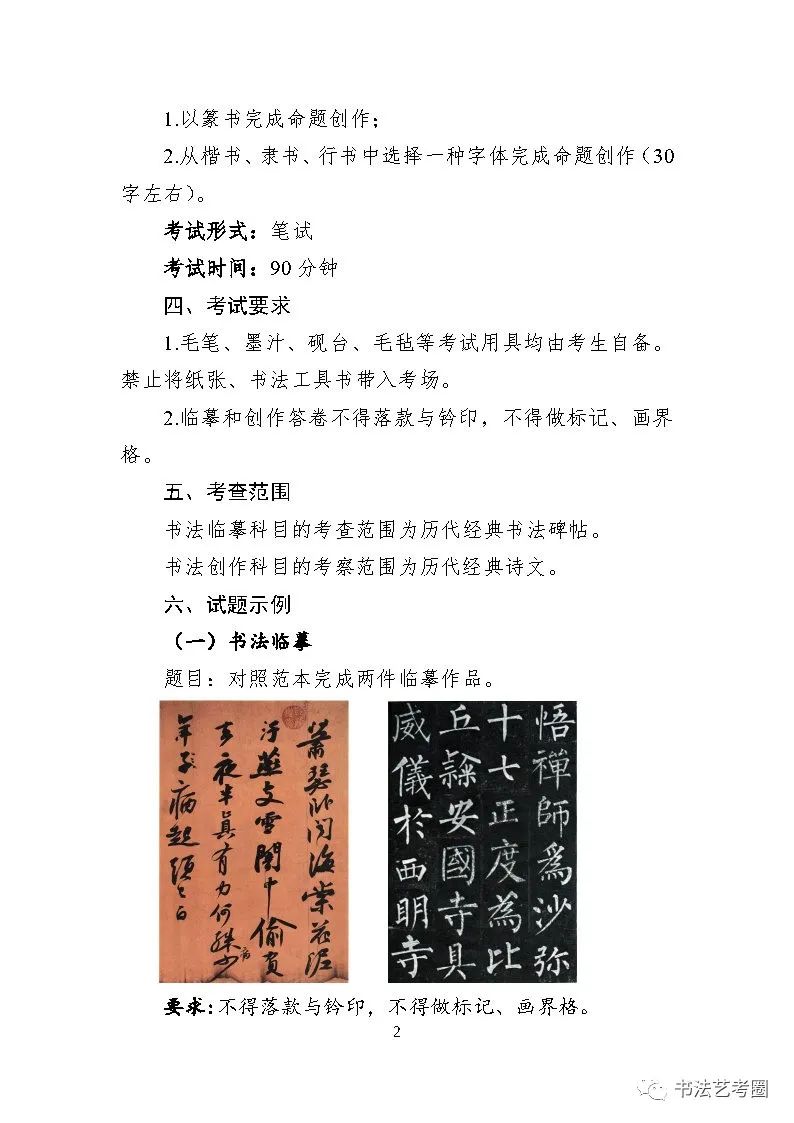 1.以篆书完成命题创作；
2.从楷书、隶书、行书中选择一种字体完成命题创作（30
字左右）。
考试形式：笔试
考试时间：90 分钟
四、考试要求
1.毛笔、墨汁、砚台、毛毡等考试用具均由考生自备。
禁止将纸张、书法工具书带入考场。
2.临摹和创作答卷不得落款与钤印，不得做标记、画界
格。
五、考查范围
书法临摹科目的考查范围为历代经典书法碑帖。
书法创作科目的考察范围为历代经典诗文。
六、试题示例
（一）书法临摹
题目：对照范本完成两件临摹作品。
蕭瑟卧聞海棠花泥
汙燕支雪闇中偷負
去夜半真有力何殊少
病
年子病起頭已白
悟禪師爲沙弥
十七正度為比
丘隸安國寺具
威儀於西明寺
要求：不得落款与钤印，不得做标记、画界格。
2
书法艺考圈